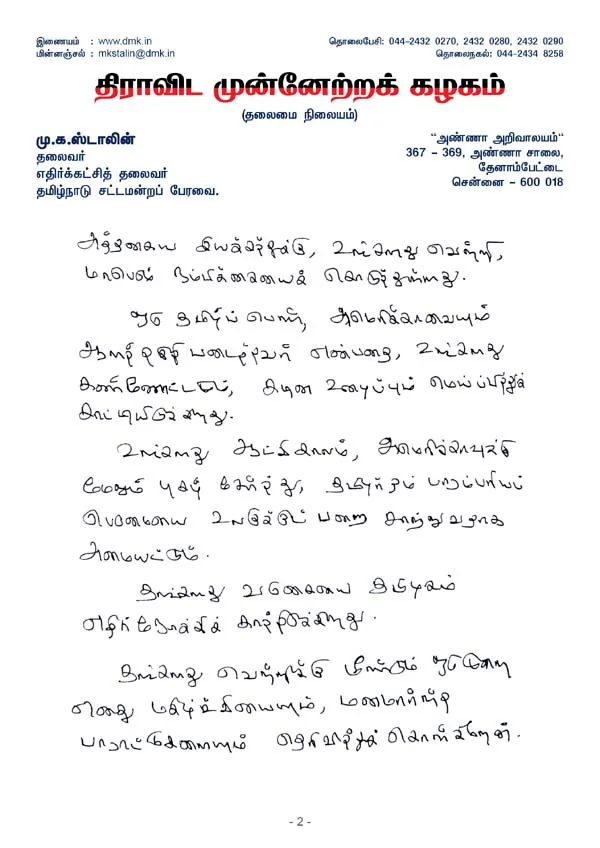 இணையம் : www.dmk.in
மின்னஞ்சல் : mkstalin@dmk.in
தொலைபேசி: 044-2432 0270, 2432 0280, 2432 0290
தொலைநகல்: 044-2434 8258
திராவிட முன்னேற்றக் கழகம்
(தலைமை நிலையம்)
மு.க.ஸ்டாலின்
தலைவர்
எதிர்க்கட்சித் தலைவர்
தமிழ்நாடு சட்டமன்றப் பேரவை.
“அண்ணா அறிவாலயம்“
367 – 369, அண்ணா சாலை,
தேனாம்பேட்டை
சென்னை – 600 018
அத்தகைய இயக்கத்துக்கு, உங்களது வெற்றி,
மாபெரும் நம்பிக்கையைக் கொடுத்துள்ளது.
ஒரு தமிழ்ப் பெண், அமெரிக்காவையும்
ஆளத் தகுதி படைத்தவர் என்பதை, உங்களது
கண்ணோட்டம், கடின உழைப்பும் மெய்ப்பித்துக்
காட்டியிருக்கிறது.
உங்களது ஆட்சிகாலம், அமெரிக்காவுக்கு
மேலும் புகழ் சேர்த்து, தமிழர்தம் பாரம்பரியப்
பெருமையை உலகுக்குப் பறை சாற்றுவதாக
அமையட்டும்.
தங்களது வருகையை தமிழகம்
எதிர்நோக்கிக் காத்திருக்கிறது.
தங்களது வெற்றிக்கு மீண்டும் ஒருமுறை
எனது மகிழ்ச்சியையும், மனமார்ந்த
பாராட்டுகளையும் தெரிவித்துக் கொள்கிறேன்.
- 2 -